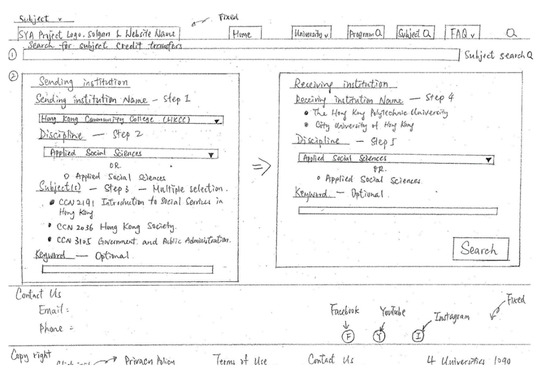 Subject v
Fixed
SYA Project Logo, Solgan & Website Name Home University v Program Q Subject Q FAQ v Q
① Search for subject credit transfers
Subject search Q
②
Sending institution
Sending institution Name — Step 1
Hong Kong Community College (HKCC)
Discipline — Step 2
Applied Social Sciences
OR
Applied Social Sciences
Subject(s) — Step 3 — Multiple selection.
CCN 2191 Introduction to Social Services in
Hong Kong
CCN 2036 Hong Kong Society.
CCN 3105 Government and Public Administration.
Keyword — Optional
⇒
Receiving institution
Receiving institution Name — Step 4
The Hong Kong Polytechnic University
City University of Hong Kong
Discipline — Step 5
Applied Social Sciences
OR.
Applied Social Sciences
Keyword — Optional
Search
Contact Us
Email :
Phone :
Facebook YouTube Instagram Fixed
F Y I
Copy right Privacy Policy Terms of Use Contact Us 4 Universities logo